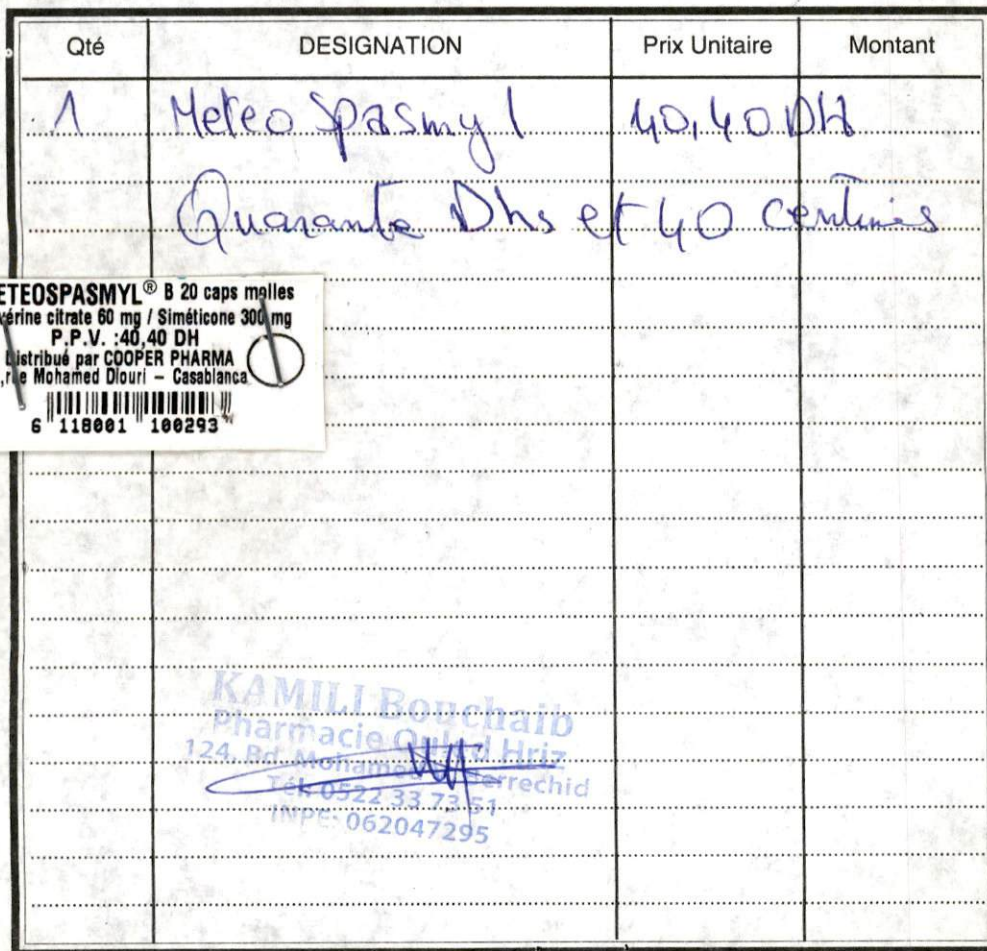 Qté DESIGNATION Prix Unitaire Montant
1 Meteo Spasmyl 40,40 DH
Quarante Dhs et 40 centimes
ETEOSPASMYL® B 20 caps molles
vérine citrate 60 mg / Siméticone 300 mg
P.P.V. :40,40 DH
Distribué par COOPER PHARMA
Mohamed Diouri – Casablanca
6 118001 100293
KAMILI Bouchaib
Pharmacie Ouled Hriz
124, Bd. Mohamed Berrechid
Tél: 0522 33 73 51
INPE: 062047295